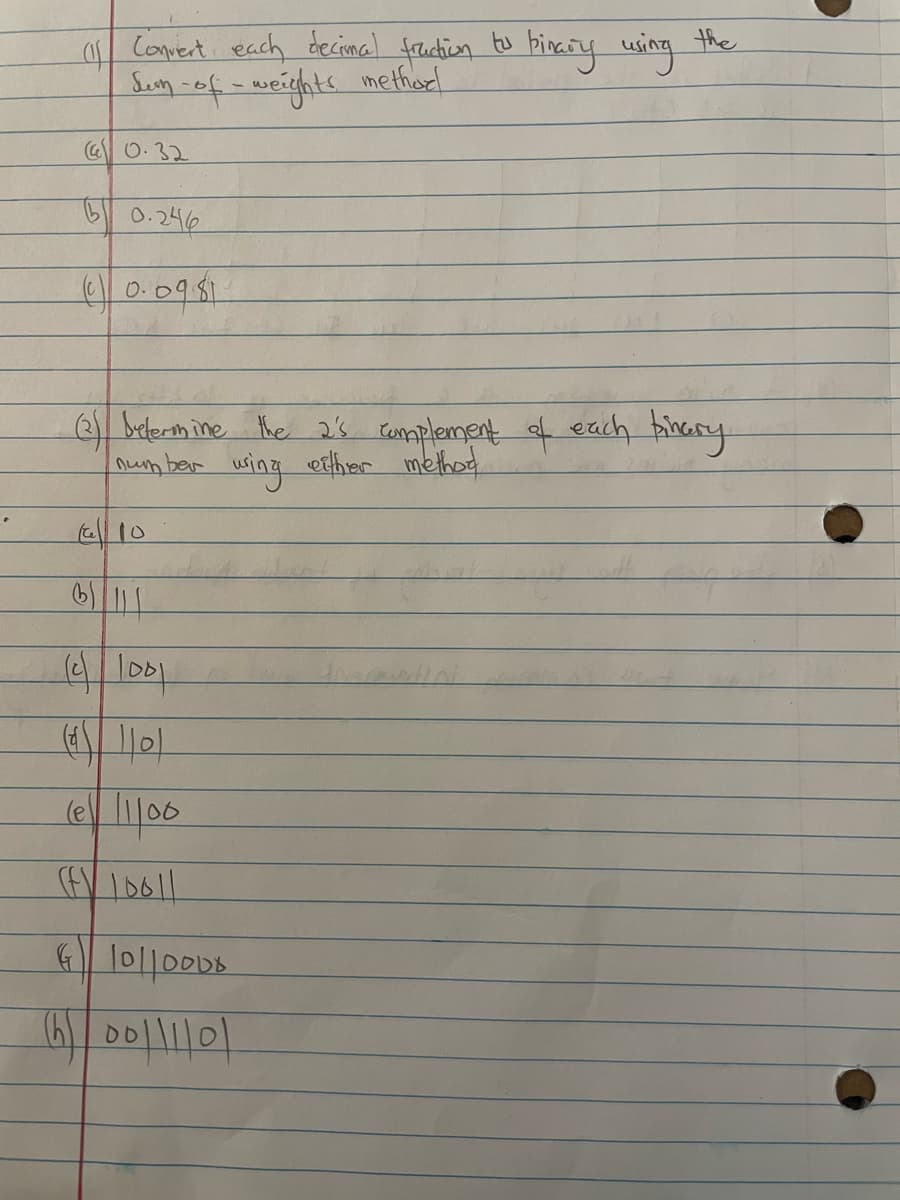 (1) Convert each decimal fraction to binary using the
Sum-of-weights method
(a) 0.32
(b) 0.246
(c) 0.0981
(2) Determine the 2's complement of each binary
number using either method
(a) 10
(b) 111
(c) 1001
(d) 1101
(e) 11100
(f) 10011
(G) 10110000
(h) 00111101